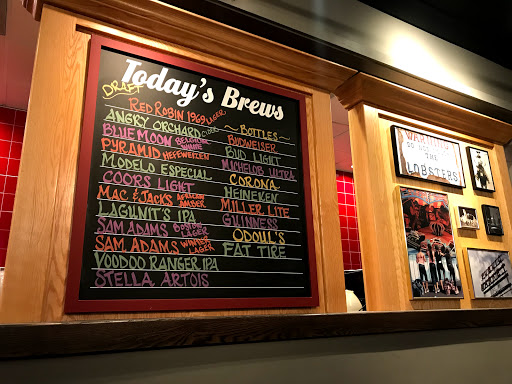 Today's Brews
DRAFT
RED ROBIN 1969 LAGER
ANGRY ORCHARD CIDER
BLUE MOON BELGIAN WHITE
PYRAMID HEFEWEIZEN
MODELO ESPECIAL
COORS LIGHT
MAC & JACKS AFRICAN AMBER
LAGUNIT'S IPA
SAM ADAMS BOSTON LAGER
SAM ADAMS WINTER LAGER
VOODOO RANGER IPA
STELLA ARTOIS
~BOTTLES~
BUDWEISER
BUD LIGHT
MICHELOB ULTRA
CORONA
HEINEKEN
MILLER LITE
GUINNESS
ODOUL'S
FAT TIRE
WARNING
DO NOT
THE
LOBSTERS!